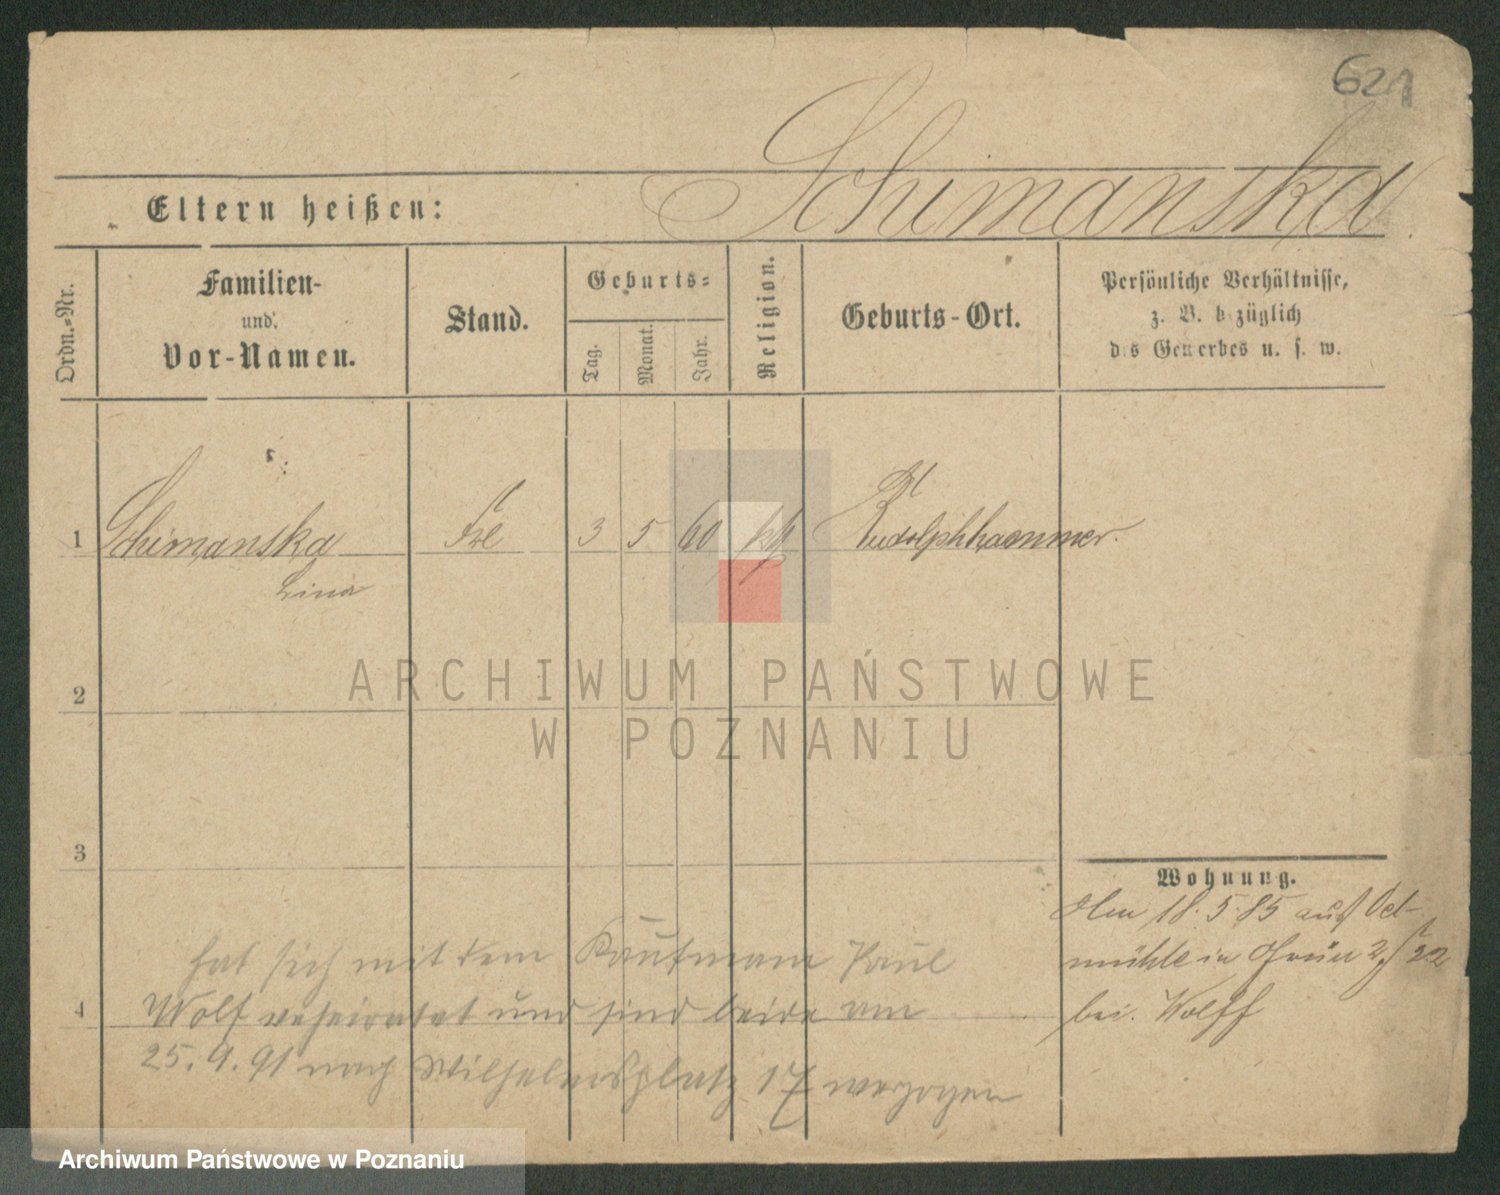 621
Schimanska
Eltern heißen:
Ordn.-Nr.
Familien-
und
Vor-Namen.
Stand.
Geburts-
Tag.
Monat.
Jahr.
Religion.
Geburts-Ort.
Persönliche Verhältnisse,
z. B. bezüglich
des Gewerbes u. s. w.
1 Schimanska Frl 3 5 60 kth Rudolphhammer.
Lina
ARCHIWUM PAŃSTWOWE
W POZNANIU
2
3
Wohnung.
18.5.85 aus
mühle in 22
bei Wolff
hat sich mit dem Kaufmann Paul
4 Wolf verheiratet und sind beide am
25.9.91 nach Wilhelmsplatz 17 verzogen
Archiwum Państwowe w Poznaniu